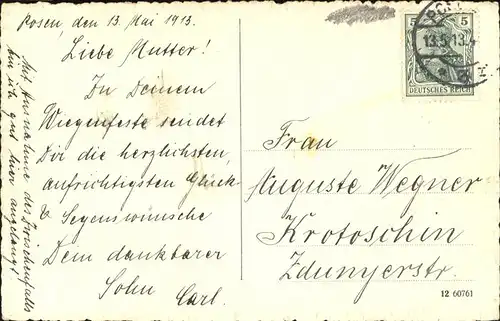 Posen, den 13. Mai 1913.
Liebe Mutter!
Zu Deinem
Wiegenfeste sendet
Dir die herzlichsten,
aufrichtigsten Glück-
& Segenswünsche
Dein dankbarer
Sohn Carl.
Mit Ausnahme des
bin ich gut hier angelangt
5 5
DEUTSCHES REICH
13.5.13.
Frau
Auguste Wegner
Krotoschin
Zdunyerstr.
12 60761